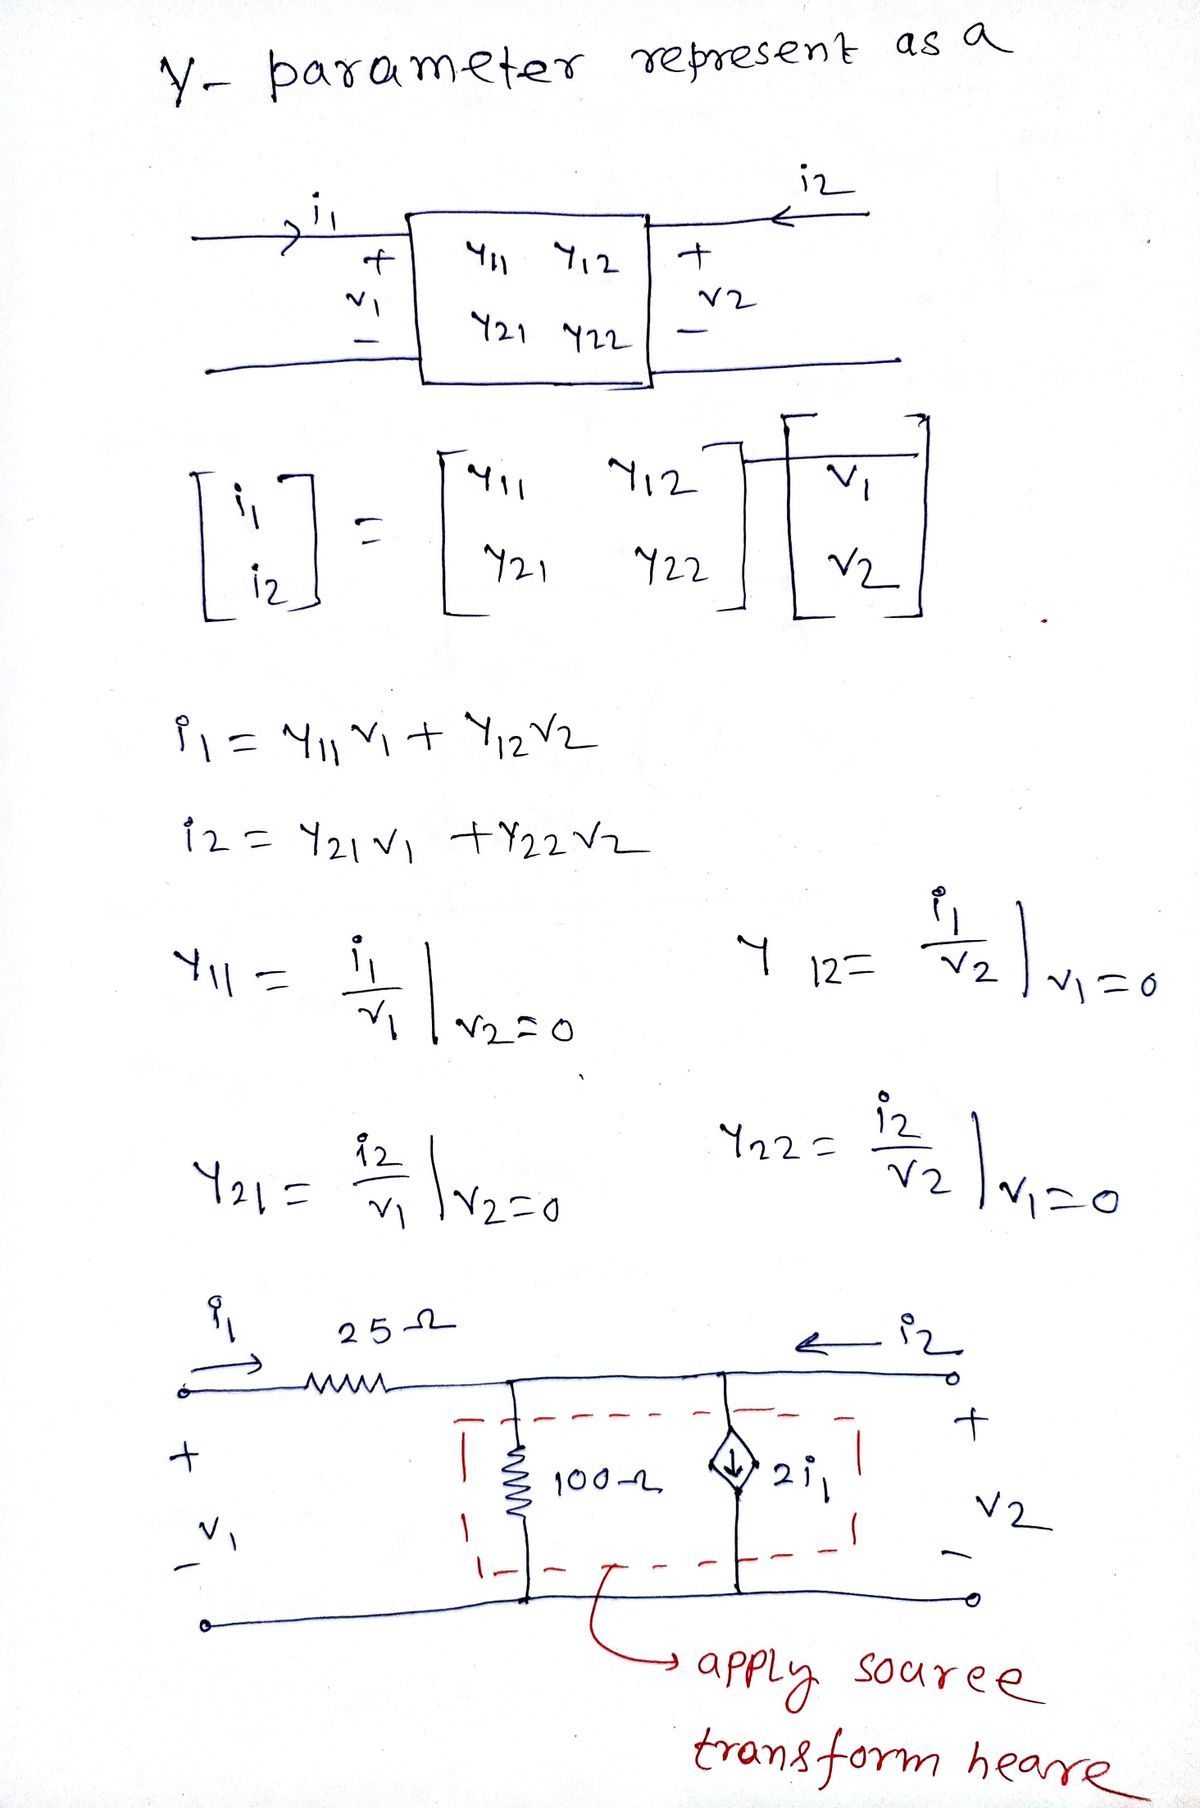 Y- parameter represent as a
i1 i2
+ Y11 Y12 +
v1 v2
- Y21 Y22 -
[i1 i2] = [Y11 Y12 Y21 Y22] [v1 v2]
i1 = Y11 v1 + Y12 v2
i2 = Y21 v1 + Y22 v2
Y11 = i1/v1 | v2=0 Y12= i1/v2 | v1=0
Y21 = i2/v1 | v2=0 Y22= i2/v2 | v1=0
i1 25Ω i2
+ +
100Ω 2i1
v1 v2
- -
apply souree
transform heare